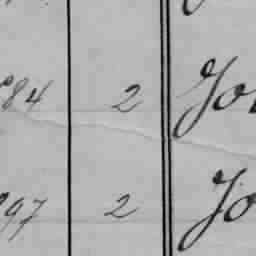 84 2 Jo
97 2 Jo